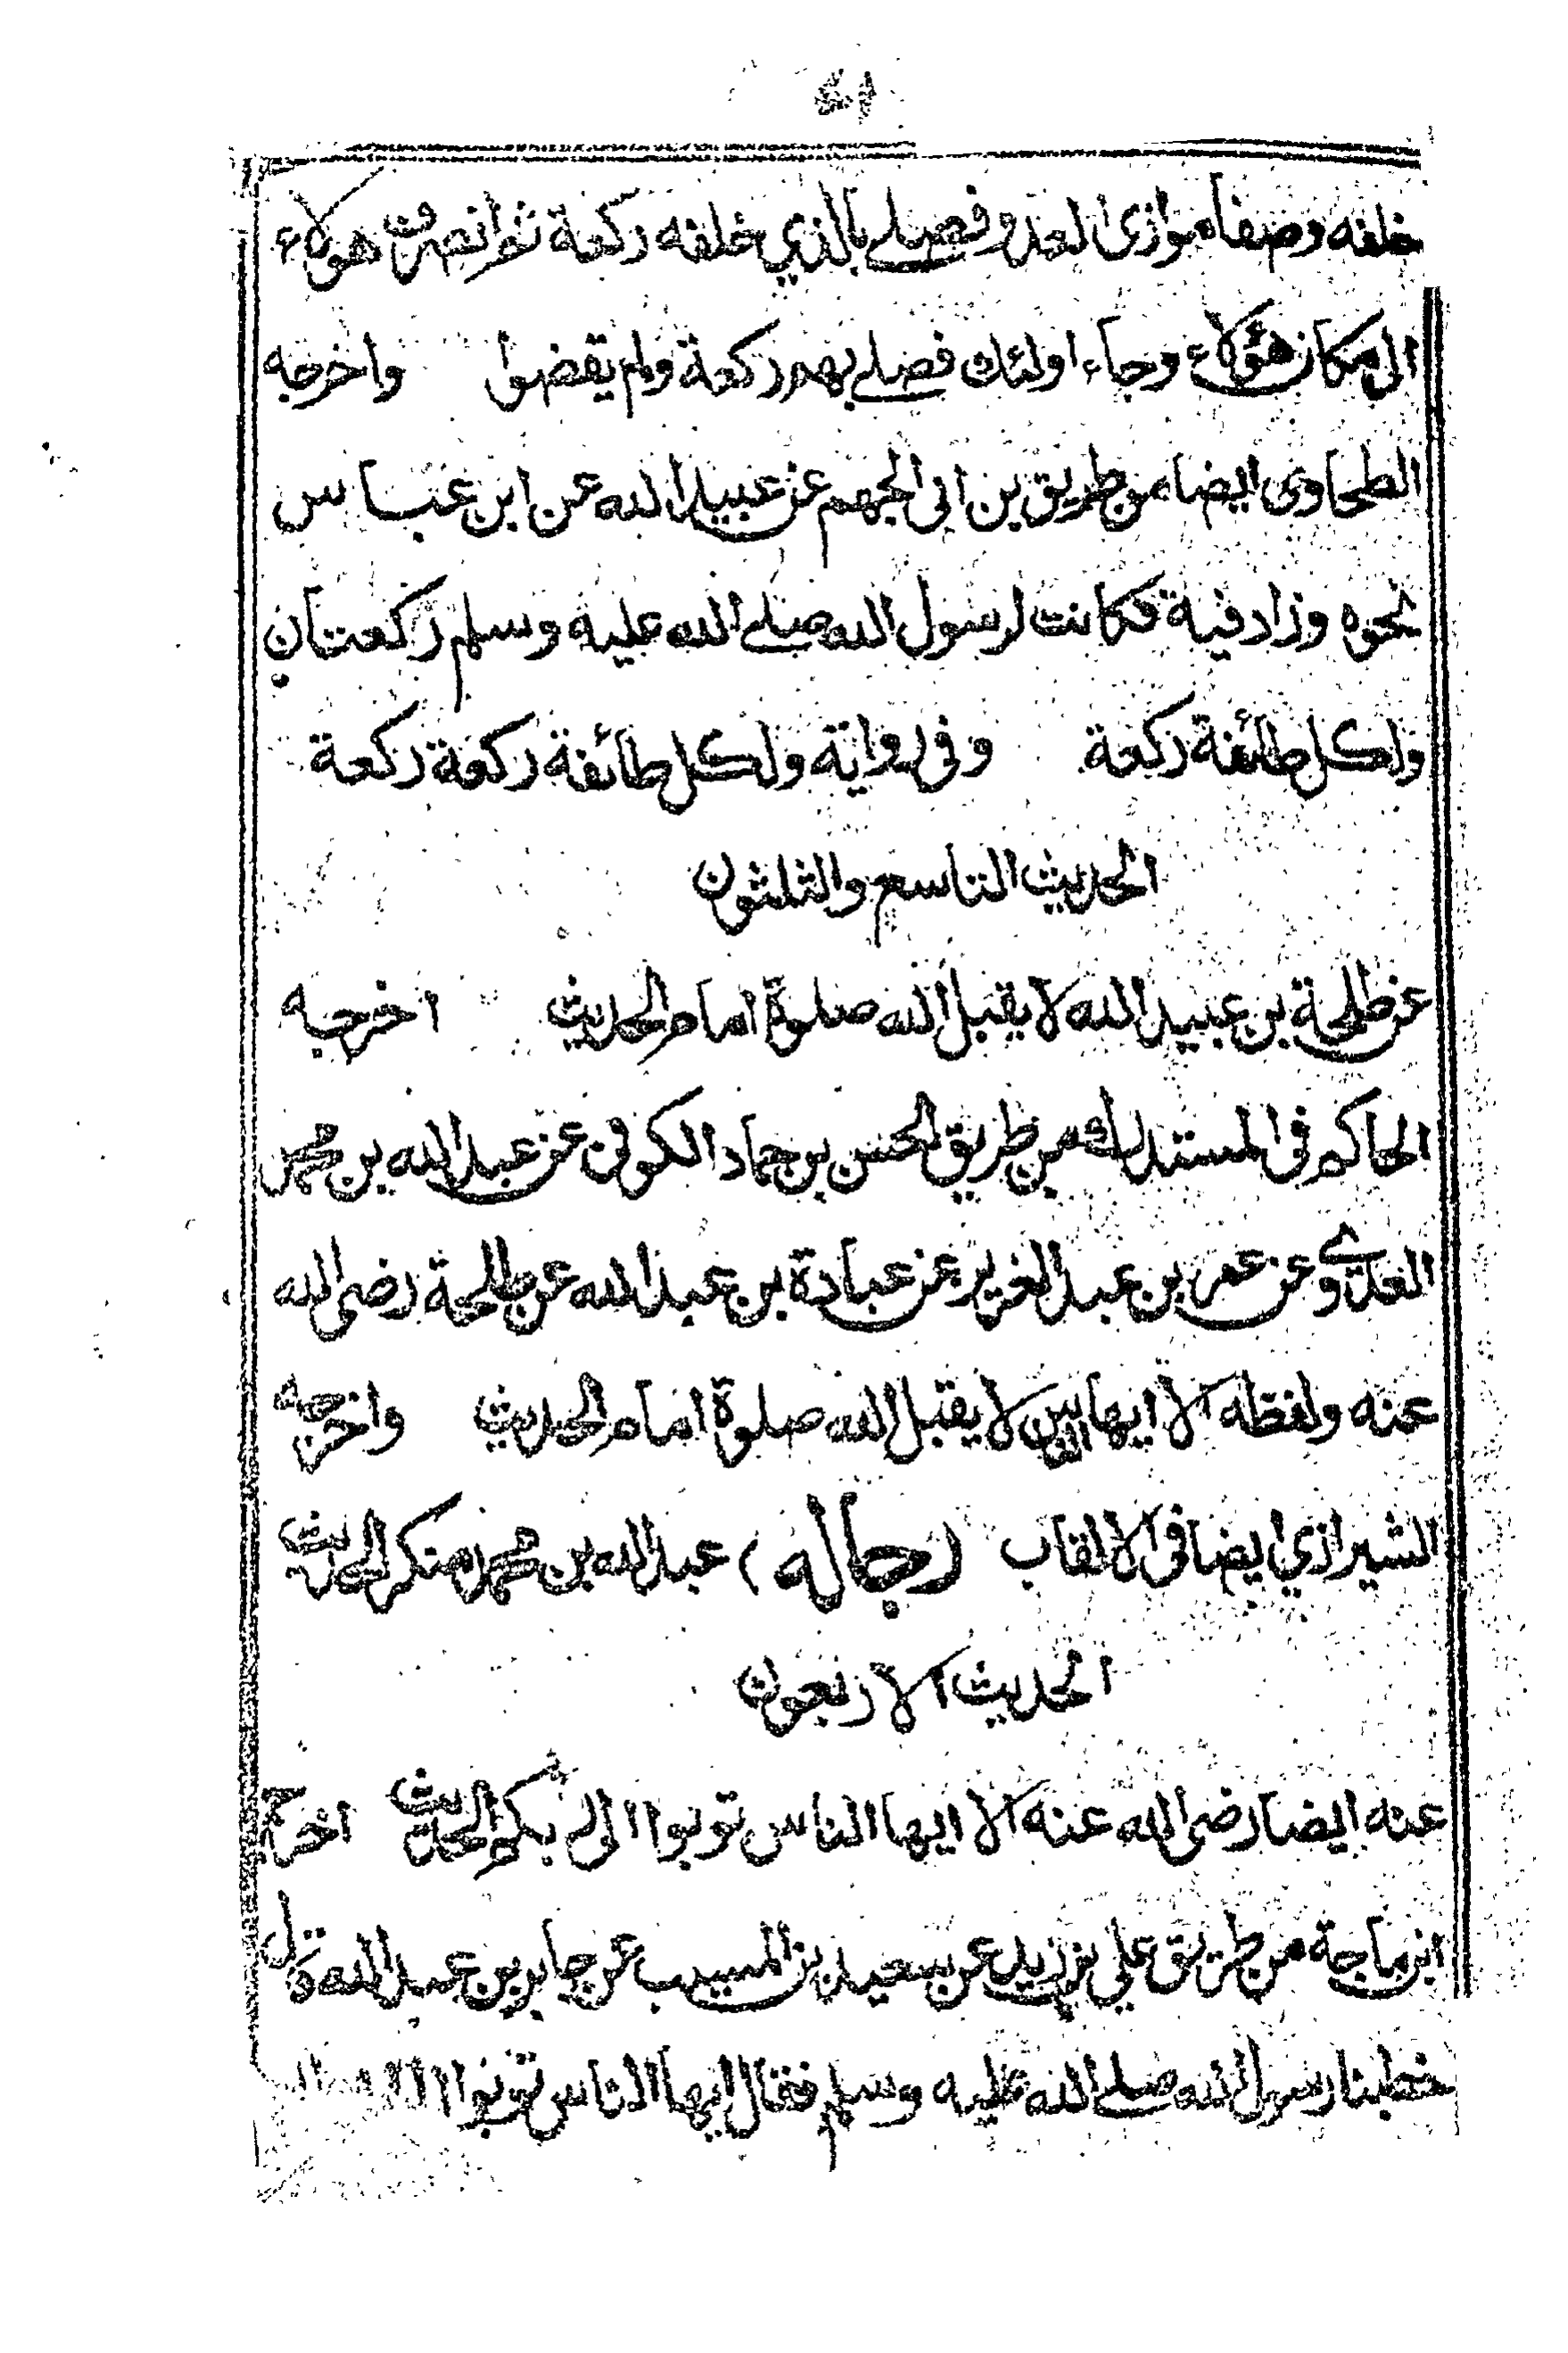 خلفه وصفا موازى العدو فصلے بالذي خلفه ركعة ثم انصرف هولاء
الى مكان هؤلاء وجاء اولئك فصلے بهم ركعة ولم يقضوا واخرجه
الطحاوى ايضا من طريق بن ابي الجهم عن عبيد الله عن ابن عباس
نحوه وزاد فية فكانت لرسول الله صلے الله عليه وسلم ركعتان
ولكل طائفة ركعة وفي رواية ولكل طائفة ركعة ركعة
الحديث التاسع والثلثون
عن طلحة بن عبيد الله لا يقبل الله صلوة امام الحديث اخرجه
الحاكم في المستدرك من طريق الحسن بن حماد الكوفي عن عبد الله بن محمد
العدوے عن عمر بن عبد العزيز عن عبادة بن عبد الله عن طلحة رضى الله
عنه ولفظه الا ايها الناس لا يقبل الله صلوة امام الحديث واخرجه
الشيرازي ايضا في الالقاب (رجاله) عبد الله بن محمد منكر الحديث
الحديث الاربعون
عنه ايضا رضى الله عنه الا ايها الناس توبوا الى ربكم الحديث اخرجه
ابن ماجة من طريق علي بن زيد عن سعيد بن المسيب عن جابر بن عبد الله قال
خطبنا رسول الله صلے الله عليه وسلم فقال ايها الناس توبوا